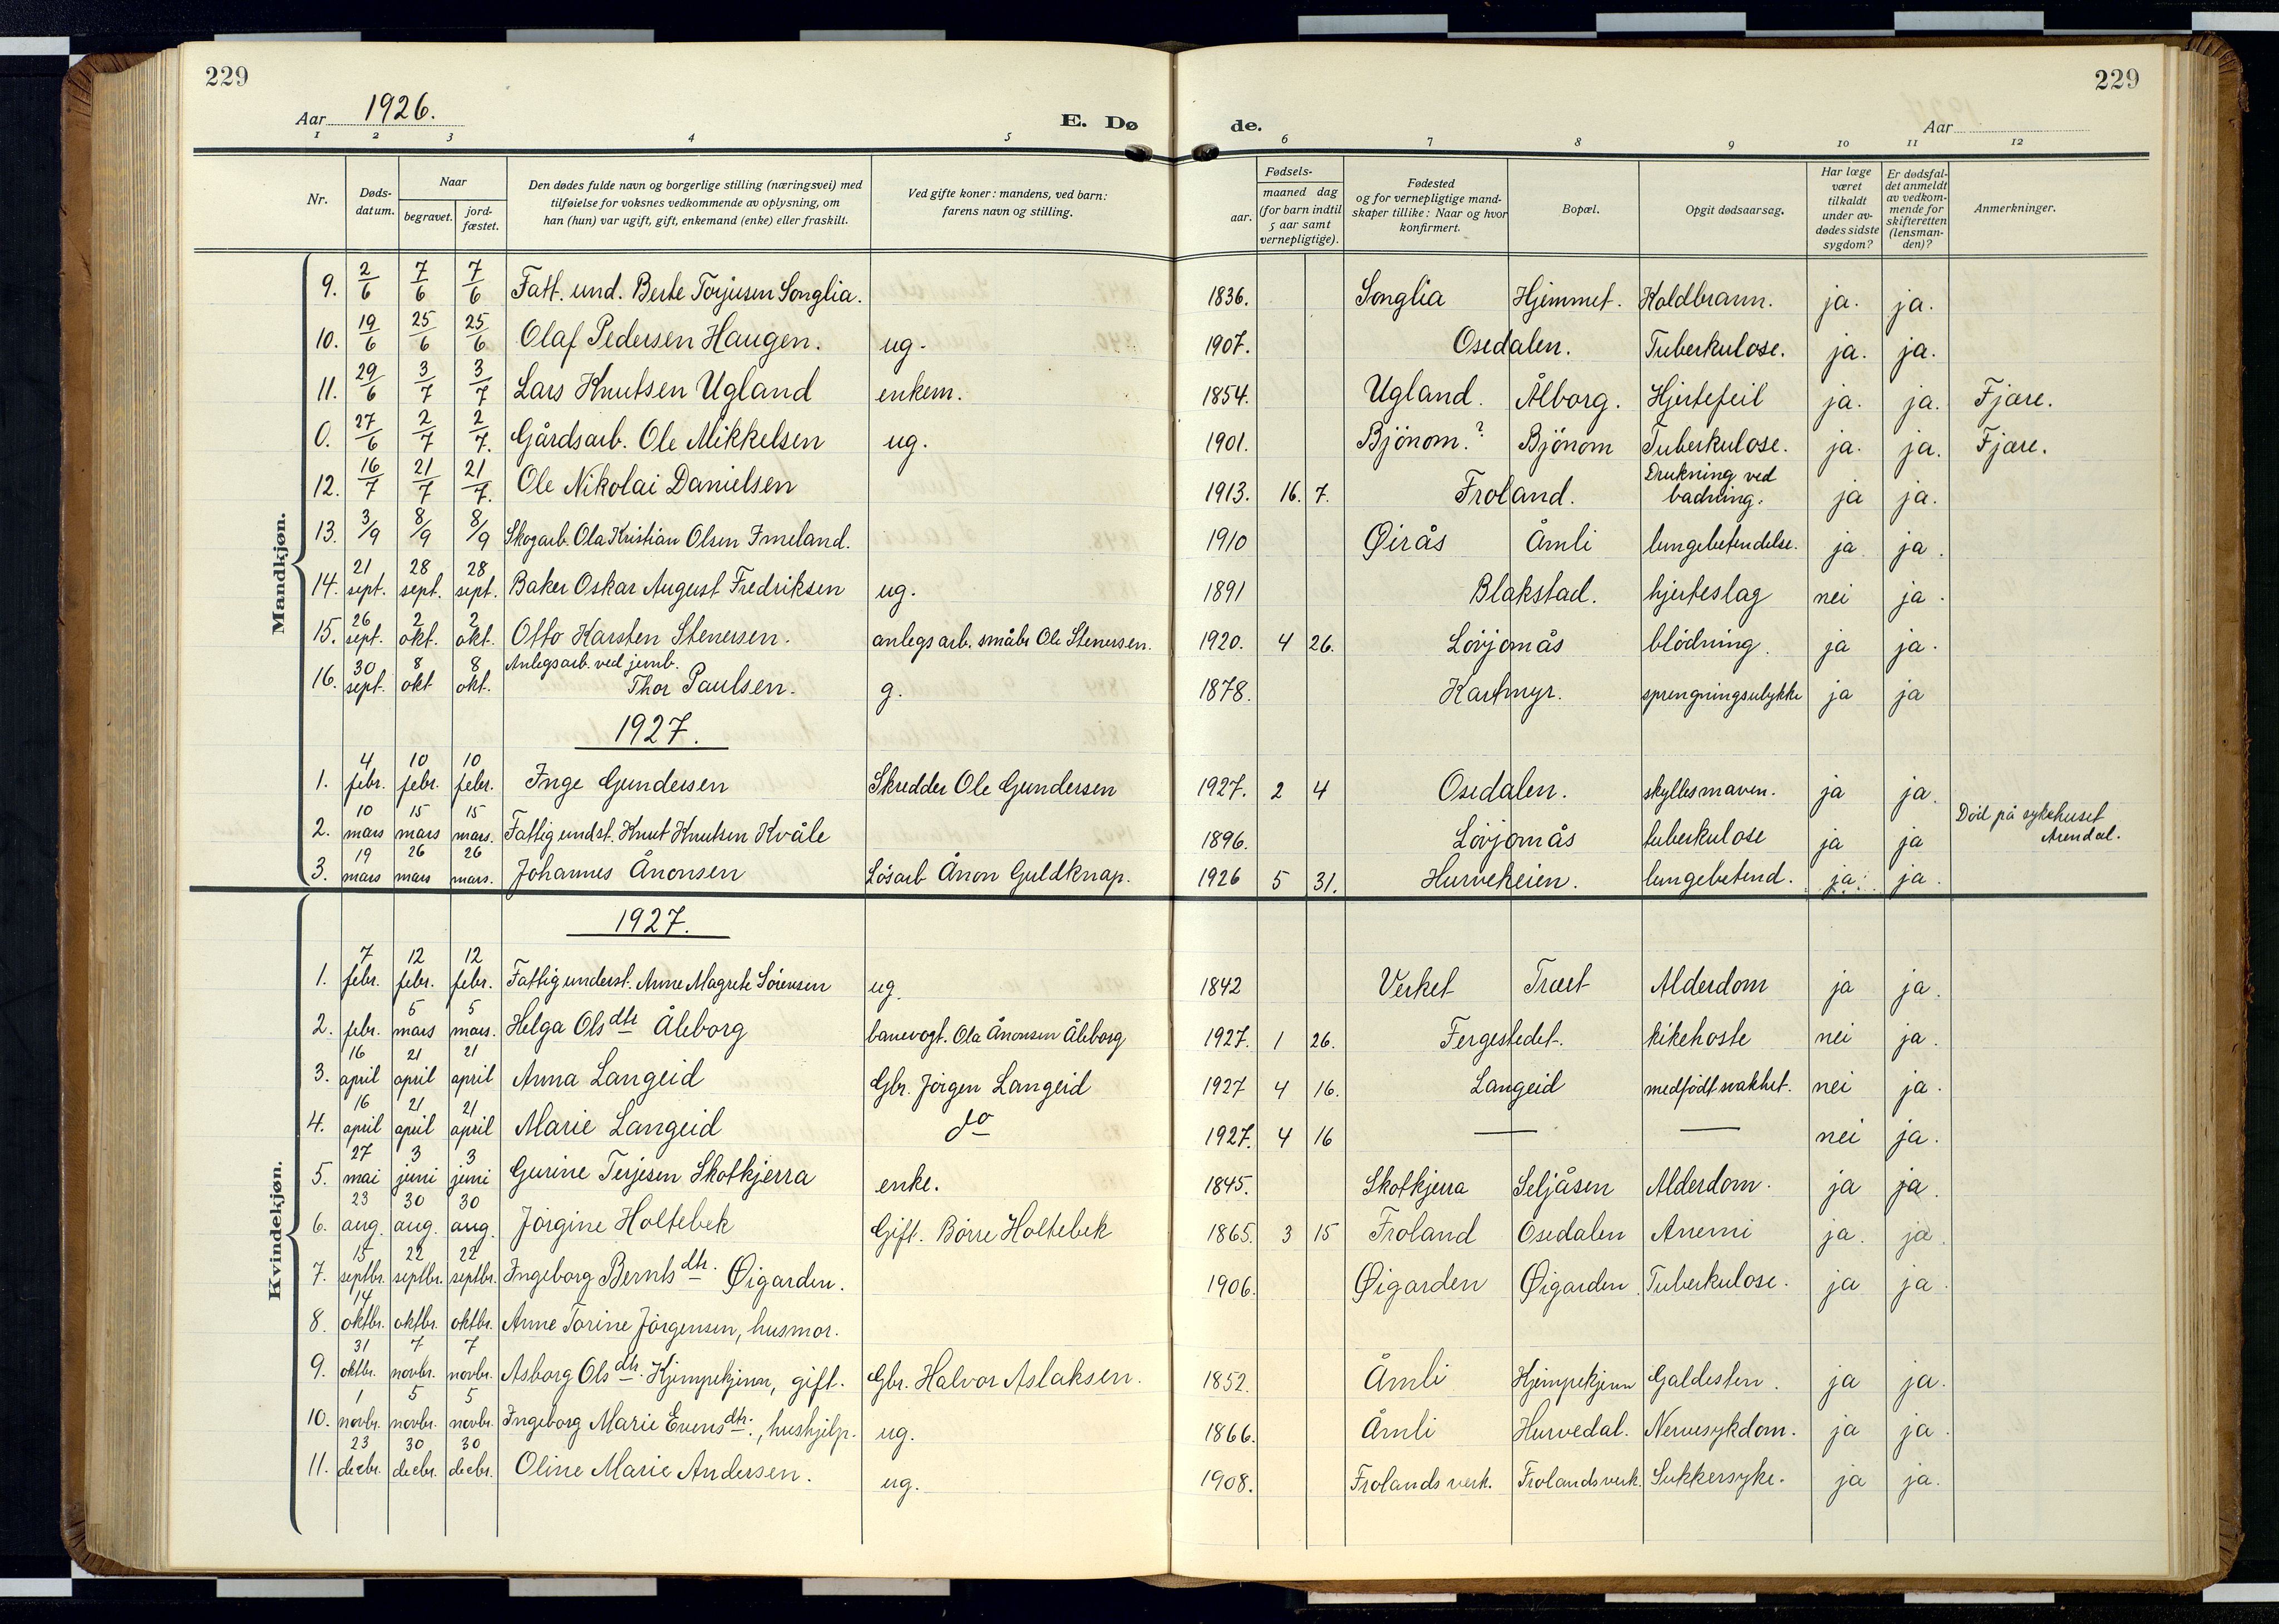 229
229
Aar 1926.
E. Dø
de.
Aar
1 2 3 4 5 6 7 8 9 10 11 12
Nr.
Døds-datum.
Naar
begravet.
jord-fæstet.
Den dødes fulde navn og borgerlige stilling (næringsvei) med
tilføielse for voksnes vedkommende av oplysning, om
han (hun) var ugift, gift, enkemand (enke) eller fraskilt.
Ved gifte koner: mandens, ved barn:
farens navn og stilling.
Fødsels-
aar.
maaned dag
(for barn indtil
5 aar samt
vernepligtige).
Fødested
og for vernepligtige mand-
skaper tillike: Naar og hvor
konfirmert.
Bopæl.
Opgit dødsaarsag.
Har læge
været
tilkaldt
under av-
dødes sidste
sygdom?
Er dødsfal-
det anmeldt
av vedkom-
mende for
skifteretten
(lensman-
den)?
Anmerkninger.
Mandkjøn.
9. 2/6 7/6 7/6 Fatt. und. Berte Torjusen Songlia. 1836. Songlia Hjemmet. Koldbrann. ja. ja.
10. 19/6 25/6 25/6 Olaf Pedersen Haugen. ug. 1907. Osedalen. Tuberkulose. ja. ja.
11. 29/6 3/7 3/7 Lars Knutsen Ugland enkem. 1854. Ugland. Ålborg. Hjertefeil ja. ja. Fjære.
0. 27/6 2/7 2/7. Gårdsarb. Ole Mikkelsen ug. 1901. Bjönom.? Bjönom Tuberkulose. ja. ja. Fjære.
12. 16/7 21/7 21/7. Ole Nikolai Danielsen 1913. 16. 7. Froland. Drukning ved badning. ja ja.
13. 3/9 8/9 8/9 Skogarb. Ola Kristian Olsen Imeland. 1910 Øirås Åmli lungebetendelse. ja ja.
14. 21 sept. 28 sept. 28 sept. Baker Oskar August Fredriksen ug. 1891 Blakstad. hjerteslag nei ja.
15. 26 sept. 2 okt. 2 okt. Otto Karsten Stenersen. anlegsarb. småbr Ole Stenersen. 1920. 4 26. Lövjomås blödning. ja ja.
16. 30 sept. 8 okt 8 okt. Anlegsarb. ved jernb. Thor Paulsen. g. 1878. Kartmyr. sprengningsulykke ja ja
1927.
1. 4 febr. 10 febr. 10 febr. Inge Gundersen Skredder Ole Gundersen 1927. 2 4 Osedalen. ja ja.
2. 10 mars 15 mars 15 mars. Fattigundst. Knut Knutsen Kvåle 1896. Lövjomås tuberkulose ja ja Död på sykehuset Arendal.
3. 19 mars 26 mars 26 mars. Johannes Ånonsen Lösarb Ånon Guldknap. 1926 5 31. Hurveheien. lungebetend. ja. ja.
Kvindekjøn.
1927.
1. 7 febr. 12 febr. 12 febr. Fattigunderst. Anne Magrete Sörensen ug. 1842 Verket Træet Alderdom ja ja.
2. febr. 5 mars 5 mars. Helga Olsdtr Åleborg banevogt. Ola Ånonsen Åleborg 1927. 1 26. Fergestedet. kikehoste nei ja.
3. 16 april 21 april 21 april Anna Langeid Gbr. Jörgen Langeid 1927 4 16. Langeid medfödt svakhet. nei ja.
4. 16 april 21 april 21 april Marie Langeid do 1927. 4 16 — — nei ja.
5. 27 mai 3 juni 3 juni Gurine Terjesen Skotkjerra enke. 1845. Skotkjerra Seljåsen Alderdom. ja ja.
6. 23 aug. 30 aug. 30 aug. Jörgine Holtebek Gift. Börre Holtebek 1865. 3 15 Froland Osedalen Anemi ja. ja.
7. 15 septbr. 22 septbr. 22 septbr. Ingeborg Berntsdtr. Øigarden. 1906. Øigarden Øigarden Tuberkulose. ja ja.
8. 14 oktbr. oktbr. oktbr. Anne Torine Jörgensen, husmor.
9. 31 oktbr. 7 novbr. 7 novbr. Asborg Olsdtr. Kjempekjenn, gift. Gbr. Halvor Aslaksen. 1852. Åmli Kjempekjenn Galdesten. ja ja.
10. 1 novbr. 5 novbr. 5 novbr. Ingeborg Marie Evensdtr., hushjelp. ug. 1866. Åmli Hurvedal. Nervesykdom. ja ja.
11. 23 decbr. 30 decbr. 30 decbr. Oline Marie Andersen. ug. 1908. Frolands verk. Frolandsverk. Sukkersyke. ja ja.